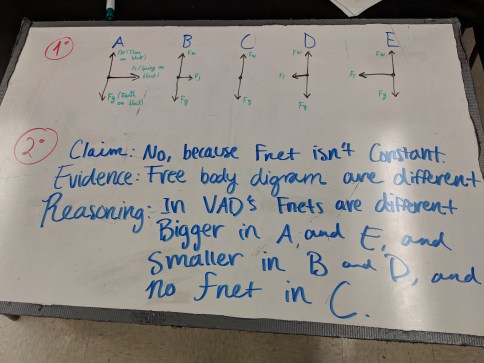 1°
A B C D E
FN (Table on block) FN FN FN FN
Fs (Spring on block) Fs Fs Fs
Fg (Earth on block) Fg Fg Fg Fg
2°
Claim: No, because Fnet isn't Constant.
Evidence: Free body digram are different
Reasoning: In VAD's Fnets are different
Bigger in A, and E, and
Smaller in B and D, and
no fnet in C.